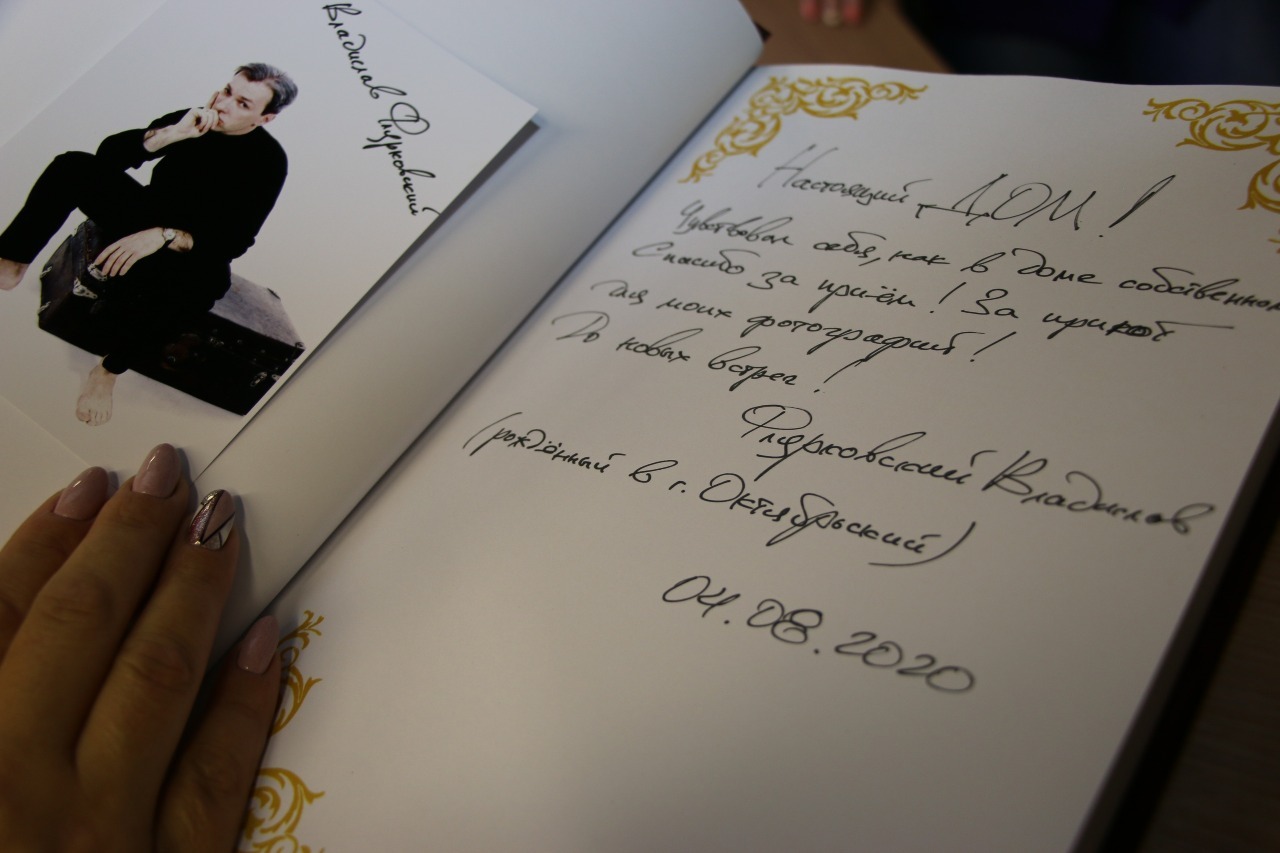 Владислав Флурковский
Настоящий ДОМ!
Чувствовал себя, как в доме собственном
Спасибо за приём! За приют
для моих фотографий!
До новых встреч!
Флурковский Владислав
(рождённый в г. Октябрьский)
04.08.2020